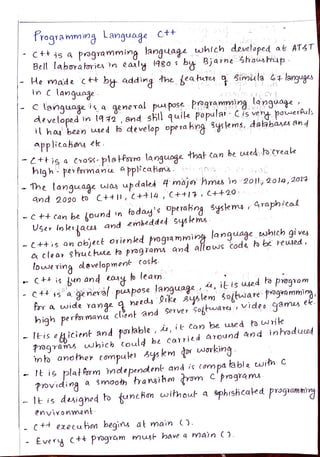 Programming Language C++
- C++ is a programming language which developed at AT&T
Bell laboratories in early 1980s by Bjarne Stroustrup.
- He made C++ by adding the features of Simula 67 languages
in C language.
- C language is a general purpose programming language,
developed in 1972, and still quite popular. C is very powerful;
it has been used to develop operating systems, databases and
applications etc.
- C++ is a cross-platform language that can be used to create
high-performance applications.
- The language was updated 4 major times in 2011, 2014, 2017
and 2020 to C++11, C++14, C++17, C++20.
- C++ can be found in today's operating systems, Graphical
User Interfaces and embedded systems.
- C++ is an object oriented programming language which gives
a clear structure to programs and allows code to be reused,
lowering development costs.
- C++ is fun and easy to learn.
- C++ is a general purpose language, ie, it is used to program
for a wide range of needs like system software programming,
high performance client and server software, video games etc.
- It is efficient and portable, ie, it can be used to write
programs which could be carried around and introduced
into another computer system for working.
- It is platform independent and is compatable with C
providing a smooth transition from C programs.
- It is designed to function without a sophisticated programming
environment.
- C++ execution begins at main ().
- Every C++ program must have a main ().